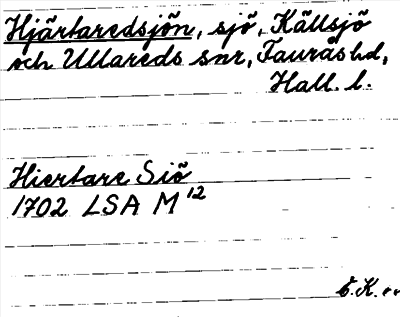 Hjärtaredsjön, sjö, Källsjö
och Ullareds snr, Faurås hd,
Hall. l.
Hiertare Siö
1702 LSA M 12
E.K.